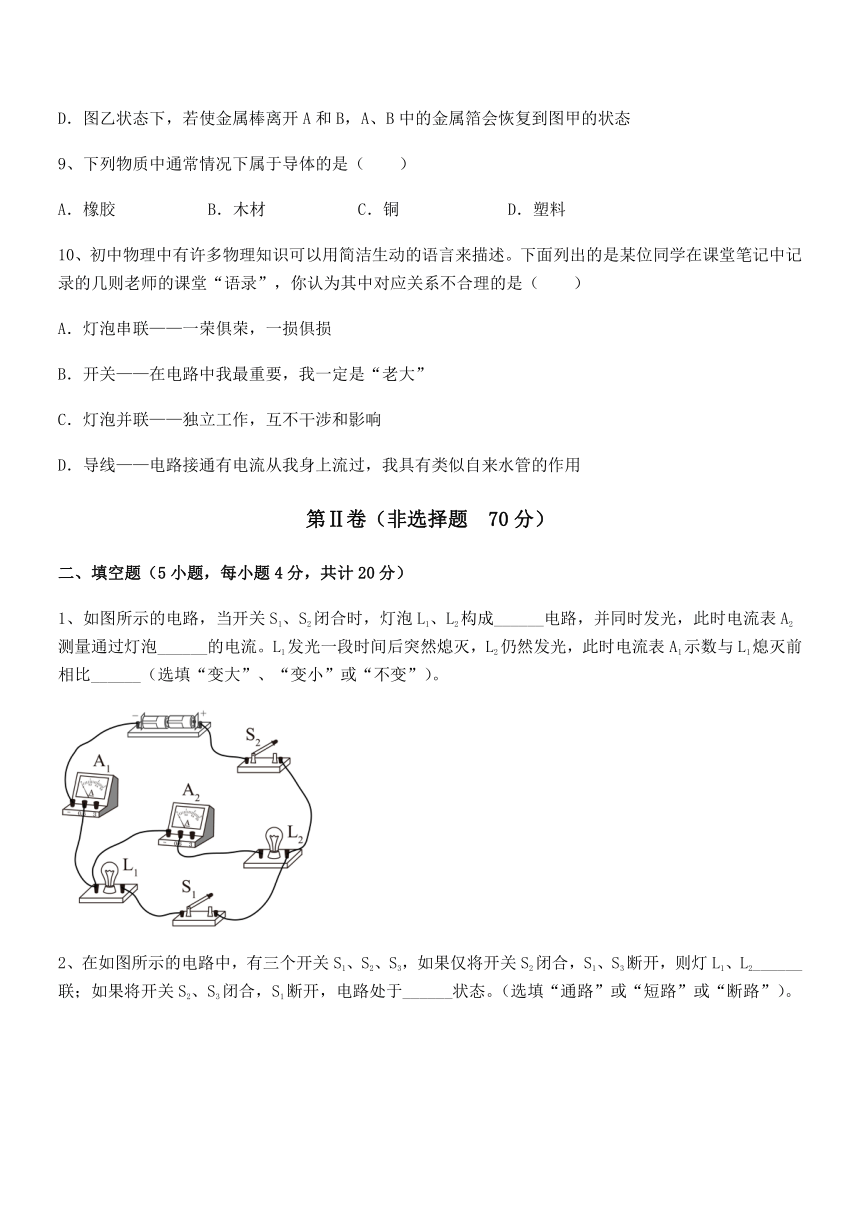 D．图乙状态下，若使金属棒离开 A 和 B，A、B 中的金属箔会恢复到图甲的状态
9、下列物质中通常情况下属于导体的是（　　）
A．橡胶 B．木材 C．铜 D．塑料
10、初中物理中有许多物理知识可以用简洁生动的语言来描述。下面列出的是某位同学在课堂笔记中记
录的几则老师的课堂“语录”，你认为其中对应关系不合理的是（　　）
A．灯泡串联——一荣俱荣，一损俱损
B．开关——在电路中我最重要，我一定是“老大”
C．灯泡并联——独立工作，互不干涉和影响
D．导线——电路接通有电流从我身上流过，我具有类似自来水管的作用
第Ⅱ卷（非选择题　70 分）
二、填空题（5 小题，每小题 4 分，共计 20 分）
1、如图所示的电路，当开关 S₁、S₂闭合时，灯泡 L₁、L₂构成______电路，并同时发光，此时电流表 A₂
测量通过灯泡______的电流。L₁发光一段时间后突然熄灭，L₂仍然发光，此时电流表 A₁示数与 L₁熄灭前
相比______（选填“变大”、“变小”或“不变”）。
－ ＋
S₂
A₁
A
A₂
A
L₂
L₁
S₁
2、在如图所示的电路中，有三个开关 S₁、S₂、S₃，如果仅将开关 S₂闭合，S₁、S₃断开，则灯 L₁、L₂______
联；如果将开关 S₂、S₃闭合，S₁断开，电路处于______状态。（选填“通路”或“短路”或“断路”）。